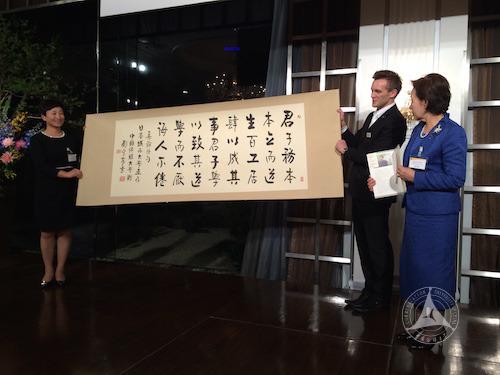 君子務本
本立而道
生百工居
肆以成其
事君子學
以致其道
學而不厭
誨人不倦